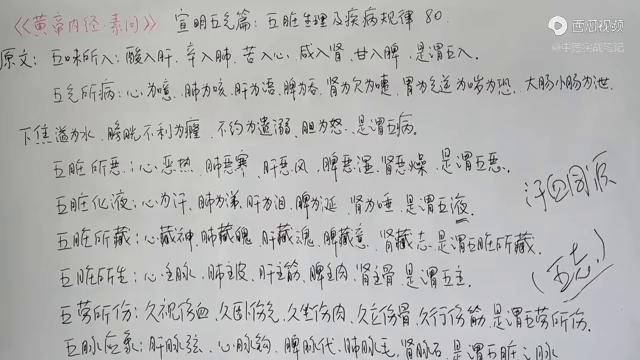 《《黄帝内经·素问》 宣明五气篇：五脏生理及疾病规律 80.
西瓜视频
@中医实战笔记
原文：五味所入：酸入肝、辛入肺、苦入心、咸入肾、甘入脾、是谓五入.
五气所病：心为噫、肺为咳、肝为语、脾为吞、肾为欠为嚏、胃为气逆为哕为恐、大肠小肠为泄、
下焦溢为水、膀胱不利为癃、不约为遗溺、胆为怒、是谓五病。
五脏所恶：心恶热、肺恶寒、肝恶风、脾恶湿、肾恶燥、是谓五恶.
五脏化液：心为汗、肺为涕、肝为泪、脾为涎、肾为唾、是谓五液.
五脏所藏：心藏神、肺藏魄、肝藏魂、脾藏意、肾藏志、是谓五脏所藏.
五脏所主：心主脉、肺主皮、肝主筋、脾主肉、肾主骨、是谓五主.
五劳所伤：久视伤血、久卧伤气、久坐伤肉、久立伤骨、久行伤筋、是谓五劳所伤.
五脉应象：肝脉弦、心脉钩、脾脉代、肺脉毛、肾脉石、是谓五脏之脉
汗血同源
(五志.)